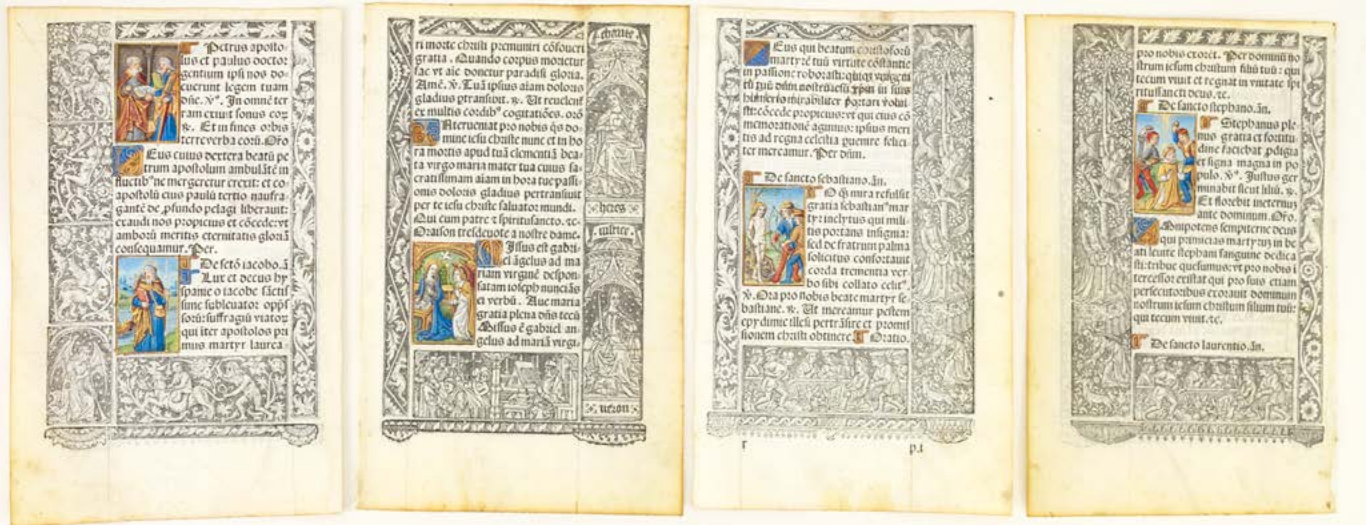 Petrus aposto-
lus et paulus doctor
gentium ipsi nos do-
cuerunt legem tuam
dñe. ℣. In omnē ter
ram exiuit sonus eoꝝ
℟. Et in fines orbis
terre verba eorū. Oro
Eus cuius dextera beatū pe
trum apostolum ambulātē in
fluctibꝰ ne mergeretur erexit: et co-
apostolū eius paulū tertio naufra-
gantē de ꝓfundo pelagi liberauit:
exaudi nos propicius et cōcede: vt
amborū meritis eternitatis gloriā
consequamur. Per.
De scto iacobo. ā
Lux et decus hy
spanie o iacobe sāctis
sime subleuator oppſ
sorū: suffragiū viatoꝝ
qui iter apostolos pri
mus martyr laurea
ri morte christi premuniri cōfoueri
gratia. Quando corpus morietur
fac vt aīe donetur paradisi gloria.
Amē. ℣. Tuā ipsius aīam doloris
gladius ptransiuit. ℟. Ut reuelent̄
ex multis cordibꝰ cogitatiōes. orō
Nterueniat pro nobis q̄s do-
mine iesu christe nunc et in ho
ra mortis apud tuā clementiā bea-
ta virgo maria mater tua cuius sa-
cratissimam aīam in hora tue passi-
onis doloris gladius pertransiuit
per te iesu christe saluator mundi.
Qui cum patre ⁊ spiritusancto. ⁊c.
Oraison tresdeuote a nostre dame.
Issus est gabri-
el āgelus ad ma
riam virginē despon
satam ioseph nuncīās
ei verbū. Aue maria
gratia plena dñs tecū
Missus ē gabriel an-
gelus ad mariā virgi-
charite
heros
iustice
veron
Eus qui beatum cristoforū
martyrē tuū virtute cōstantie
in passione roborasti: quiqꝫ vnigeni
tū tuū dñm nostrū iesū xpm in suis
humeris mirabiliter portari volui
sti: cōcede propicius: vt qui eius cō
memorationē agimus: ipsius meri
tis ad regna celestia puenire felici
ter mereamur. Per dñm.
De sancto sebastiano. ān.
O q̄ mira refulsit
gratia sebastianꝰ mar
tyr inclytus qui mili
tis portans insignia:
sed de fratrum palma
solicitus confortauit
corda trementia ver
bo sibi collato celitꝰ.
℣. Ora pro nobis beate martyr se
bastiane. ℟. Ut mereamur pestem
epydimie illesi pertrāsire et promis
sionem christi obtinere. Oratio.
p.i
pro nobis exoret. Per dominū no
strum iesum christum filiū tuū: qui
tecum viuit et regnat in vnitate spi
ritussancti deus. ⁊c.
De sancto stephano. ān.
Stephanus ple
nus gratia et fortitu
dine faciebat ꝓdigia
et signa magna in po
pulo. ℣. Justus ger
minabit sicut liliū. ℟.
Et florebit ineternuꝫ
ante dominum. Oro.
Mnipotens sempiterne deus
qui primicias martyrum in be
ati leuite stephani sanguine dedica
sti: tribue quesumus: vt pro nobis ī
tercessor existat qui pro suis etiam
persecutoribus exorauit dominum
nostrum iesum christum filium tuū:
qui tecum viuit. ⁊c.
De sancto laurentio. ān.